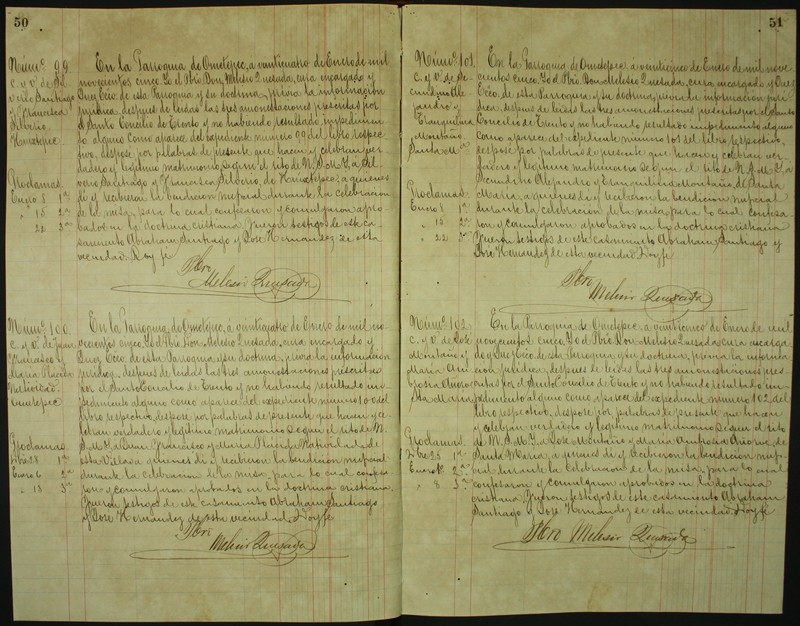 50
Núm. 99
C. y V. de
verio Santiago
y Francisca
Silverio
Huixtepec
Proclamas
Enero 8 1ª
" 15 2ª
" 22 3ª
En la Parroquia de Ometepec, a veinticuatro de Enero de mil
novecientos cinco. Yo el Pbro. Don Melesio Quesada, cura encargado y
Juez Ecco. de esta Parroquia y su doctrina, previa la información
jurídica, despues de leidas las tres amonestaciones prescritas por
el Santo Concilio de Trento y no habiendo resultado impedimen
to alguno como aparece del expediente número 99 del libro respec
tivo, despose por palabras de presente que hacen y celebran ver
dadero y legítimo matrimonio segun el rito de N. S. M. Y. a
Santiago y Francisca Silverio, de Huixtepec; a quienes
di y recibieron la bendicion nupcial durante la celebracion
de la misa, para lo cual confesaron y comulgaron apro
bados en la doctrina cristiana. Fueron testigos de este ca
samiento Abraham Santiago y José Hernandez de esta
vecindad. Doy fe
Pbro.
Melesio Quesada
Núm. 100
C. y V. de
Francisco y
Maria
Natividad
Ometepec
Proclamas
1ª
Enero 6 2ª
3ª
En la Parroquia de Ometepec, a veinticuatro de Enero de mil no
vecientos cinco. Yo el Pbro. Don Melesio Quesada, cura encargado y
Juez Ecco. de esta Parroquia y su doctrina, previa la informacion
jurídica, despues de leidas las tres amonestaciones prescritas
por el Santo Concilio de Trento y no habiendo resultado im
pedimento alguno como aparece del expediente número 100 del
libro respectivo, despose por palabras de presente que hacen y ce
lebran verdadero y legitimo matrimonio segun el rito de N.
S. M. Y. a Francisco y Maria Natividad, de
esta Villa, a quienes di y recibieron la bendicion nupcial
durante la celebracion de la misa, para lo cual confesa
ron y comulgaron aprobados en la doctrina cristiana.
Fueron testigos de este casamiento Abraham Santiago
y José Hernandez de esta vecindad. Doy fe
Pbro.
Melesio Quesada
51
Núm. 101
C. y V. de
Ale
jandro y
Tranquilina
Montaño.
Santa Mª
Proclamas
Enero 8 1ª
" 15 2ª
" 22 3ª
En la Parroquia de Ometepec, a veinticinco de Enero de mil nove
cientos cinco. Yo el Pbro. Don Melesio Quesada, cura encargado y Juez
Ecco. de esta Parroquia y su doctrina, previa la informacion jurí
dica, despues de leidas las tres amonestaciones prescritas por el Santo
Concilio de Trento y no habiendo resultado impedimento alguno
como aparece del expediente número 101 del libro respectivo,
despose por palabras de presente que hacen y celebran ver
dadero y legitimo matrimonio segun el rito de N. S. M. Y. a
Alejandro y Tranquilina Montaño, de Santa
Maria, a quienes di y recibieron la bendicion nupcial
durante la celebracion de la misa, para lo cual confesa
ron y comulgaron aprobados en la doctrina cristiana
Fueron testigos de este casamiento Abraham Santiago y
José Hernandez de esta vecindad. Doy fe
Pbro.
Melesio Quesada
Núm. 102
C. y V. de José
Montaño y
Maria Am
brosia
Sta. Maria
Proclamas
1ª
Enero 2ª
8 3ª
En la Parroquia de Ometepec, a veinticinco de Enero de mil
novecientos cinco. Yo el Pbro. Don Melesio Quesada, cura encarga
do y Juez Ecco. de esta Parroquia y su doctrina, previa la informa
cion juridica, despues de leidas las tres amonestaciones pres
critas por el Santo Concilio de Trento y no habiendo resultado im
pedimento alguno como aparece del expediente número 102, del
libro respectivo, despose por palabras de presente que hacen
y celebran verdadero y legitimo matrimonio segun el rito
de N. S. M. Y. a José Montaño y Maria Ambrosia de
Santa Maria, a quienes di y recibieron la bendicion nup
cial durante la celebracion de la misa, para lo cual
confesaron y comulgaron aprobados en la doctrina
cristiana. Fueron testigos de este casamiento Abraham
Santiago y José Hernandez de esta vecindad. Doy fe
Pbro. Melesio Quesada